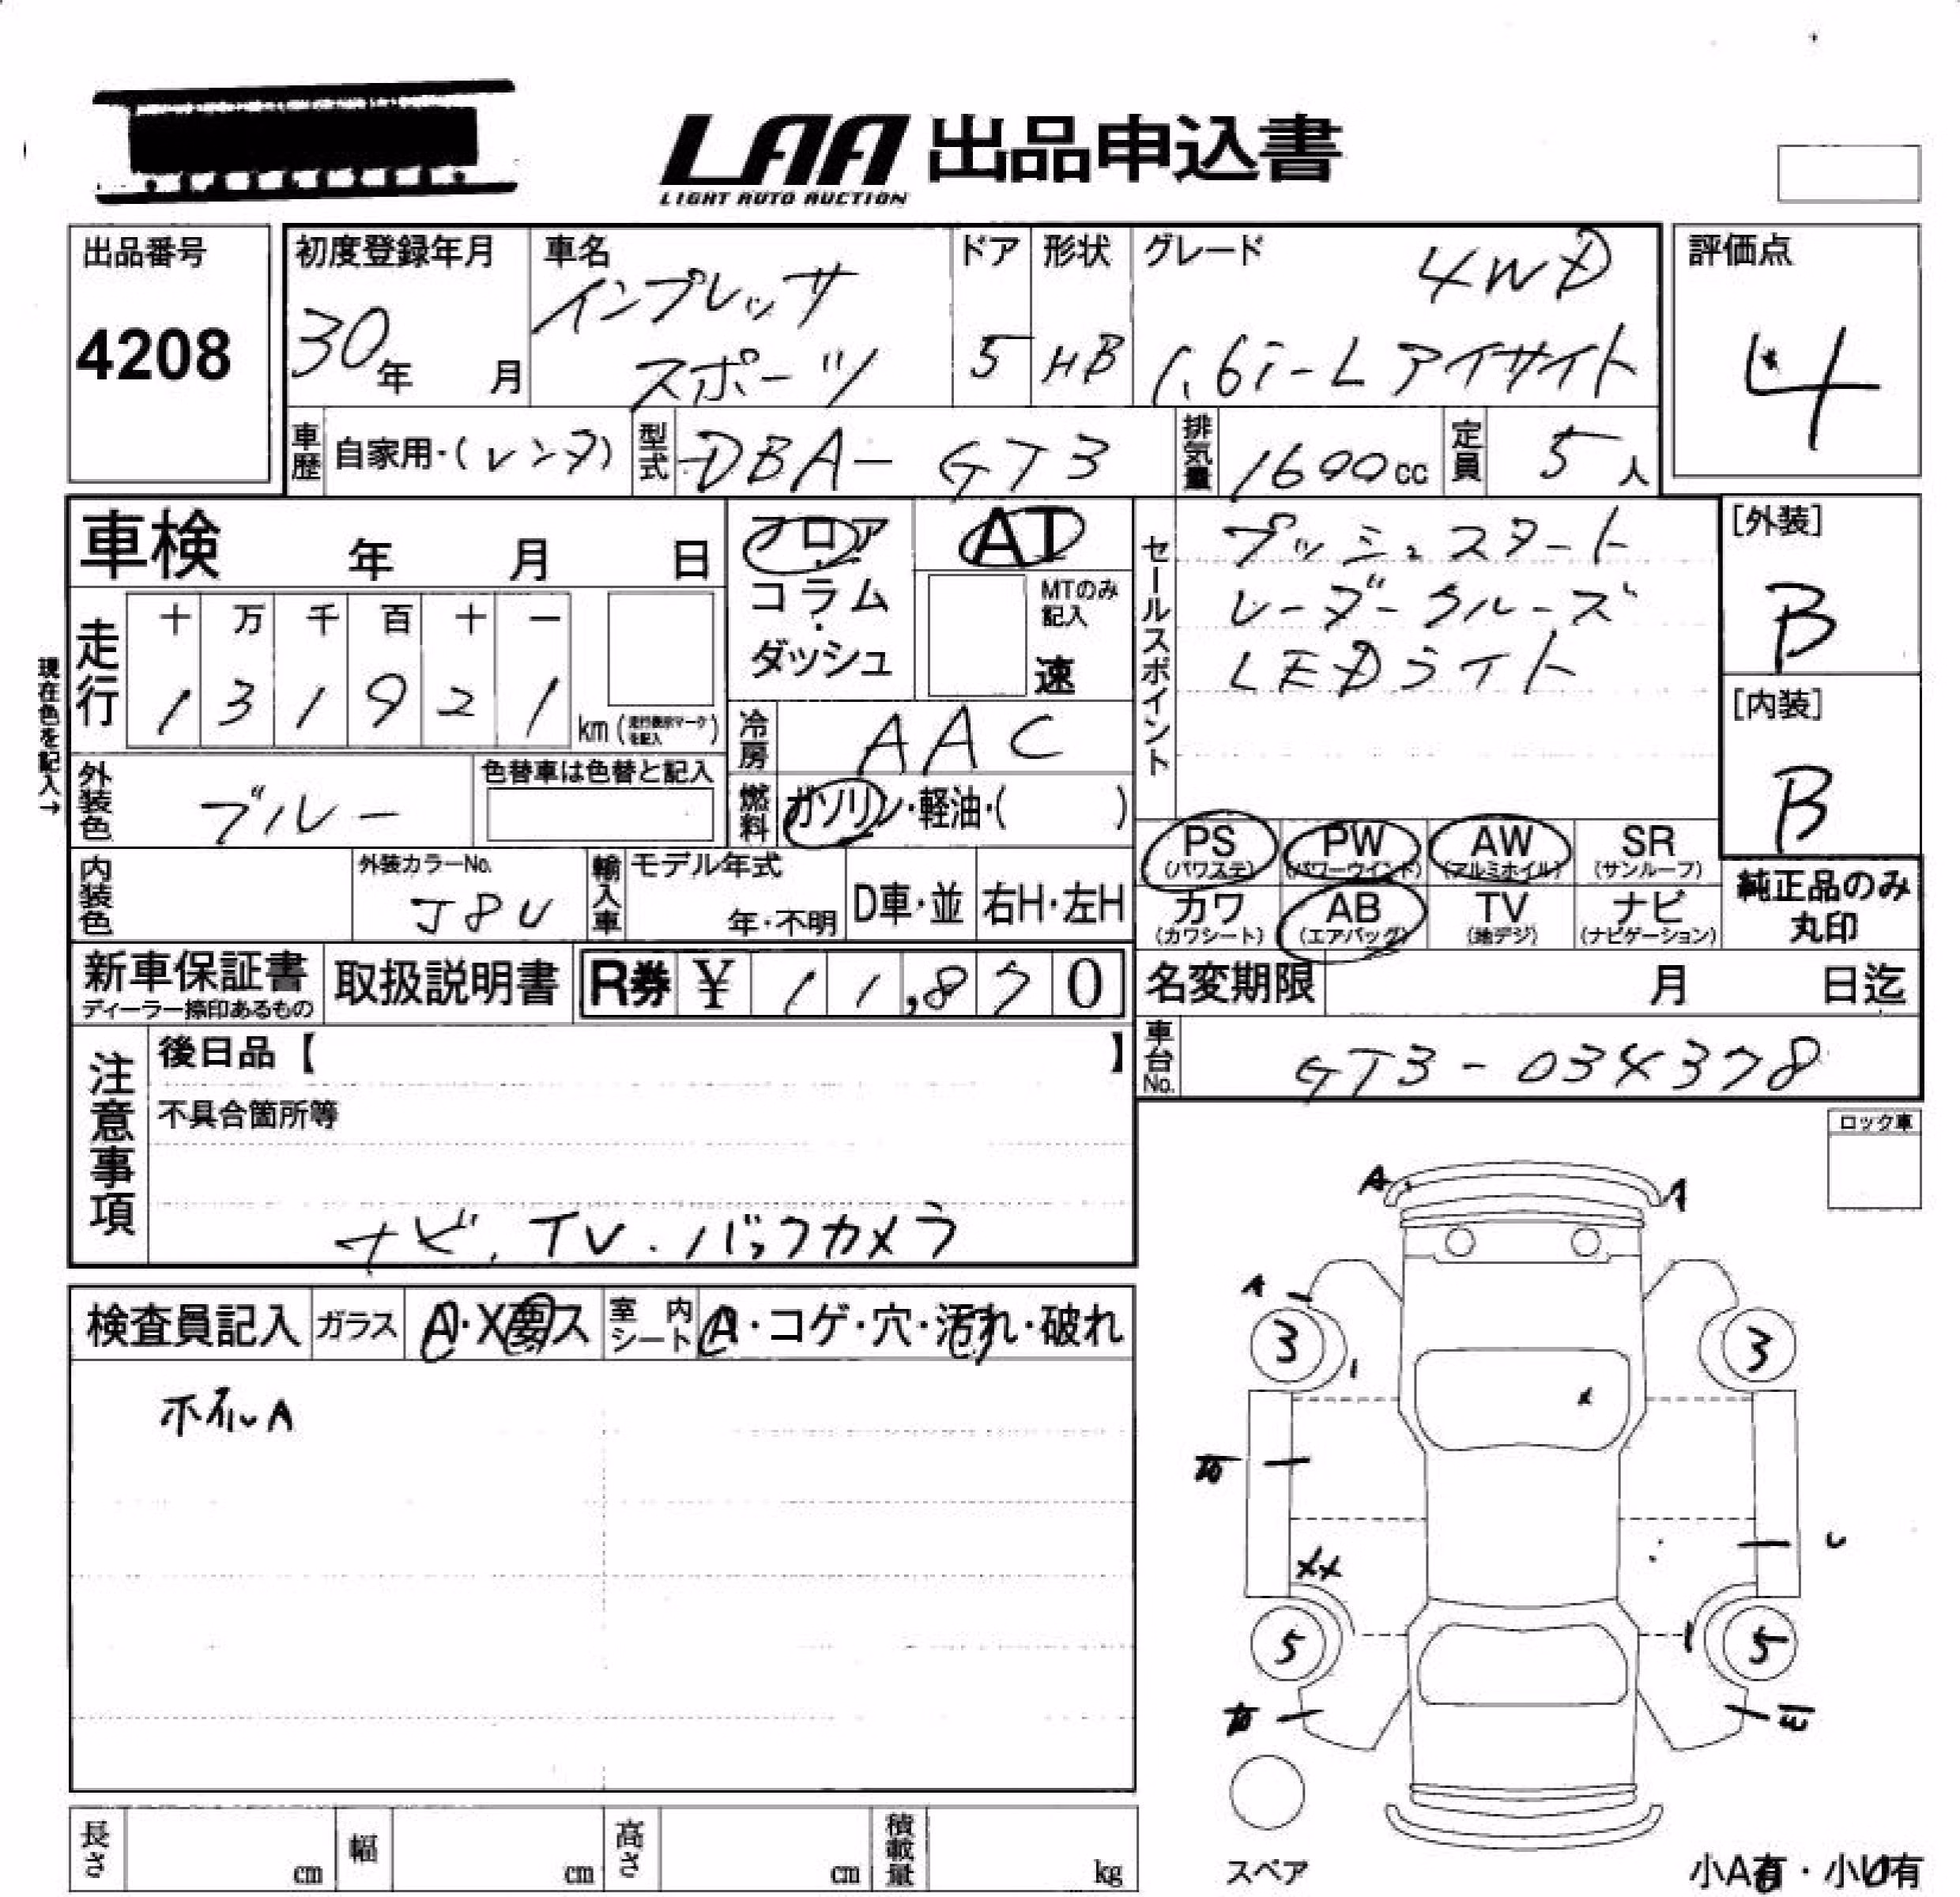 LAA 出品申込書
LIGHT AUTO AUCTION
出品番号
4208
初度登録年月
30年 月
車名
インプレッサ
スポーツ
ドア
5
形状
HB
グレード
4WD
1.6i-L アイサイト
評価点
4
車歴 自家用・(レンタ)
型式 DBA- GT3
排気量 1600cc
定員 5人
車検 年 月 日
走行 十 万 千 百 十 一
1 3 1 9 2 1 km (走行表示マークを記入)
現在色を記入→
フロア・コラム・ダッシュ
AT
MTのみ記入
速
冷房 AAC
燃料 ガソリン・軽油・( )
セールスポイント
プッシュスタート
レーダークルーズ
LEDライト
[外装]
B
[内装]
B
外装色 ブルー
色替車は色替と記入
内装色
外装カラーNo.
J8U
輸入車
モデル年式
年・不明
D車・並
右H・左H
PS (パワステ)
PW (パワーウインド)
AW (アルミホイル)
SR (サンルーフ)
カワ (カワシート)
AB (エアバッグ)
TV (地デジ)
ナビ (ナビゲーション)
純正品のみ
丸印
新車保証書
ディーラー捺印あるもの
取扱説明書
R券 ¥ 11,870
名変期限 月 日迄
車台No. GT3-034378
注意事項
後日品【 】
不具合箇所等
ナビ. TV. バックカメラ
ロック車
検査員記入
ガラス A・X要ス
室内シート A・コゲ・穴・汚れ・破れ
ホイルA
A
A
A
3
3
X
XX
5
5
スペア
小A有・小U有
長さ cm
幅 cm
高さ cm
積載量 kg